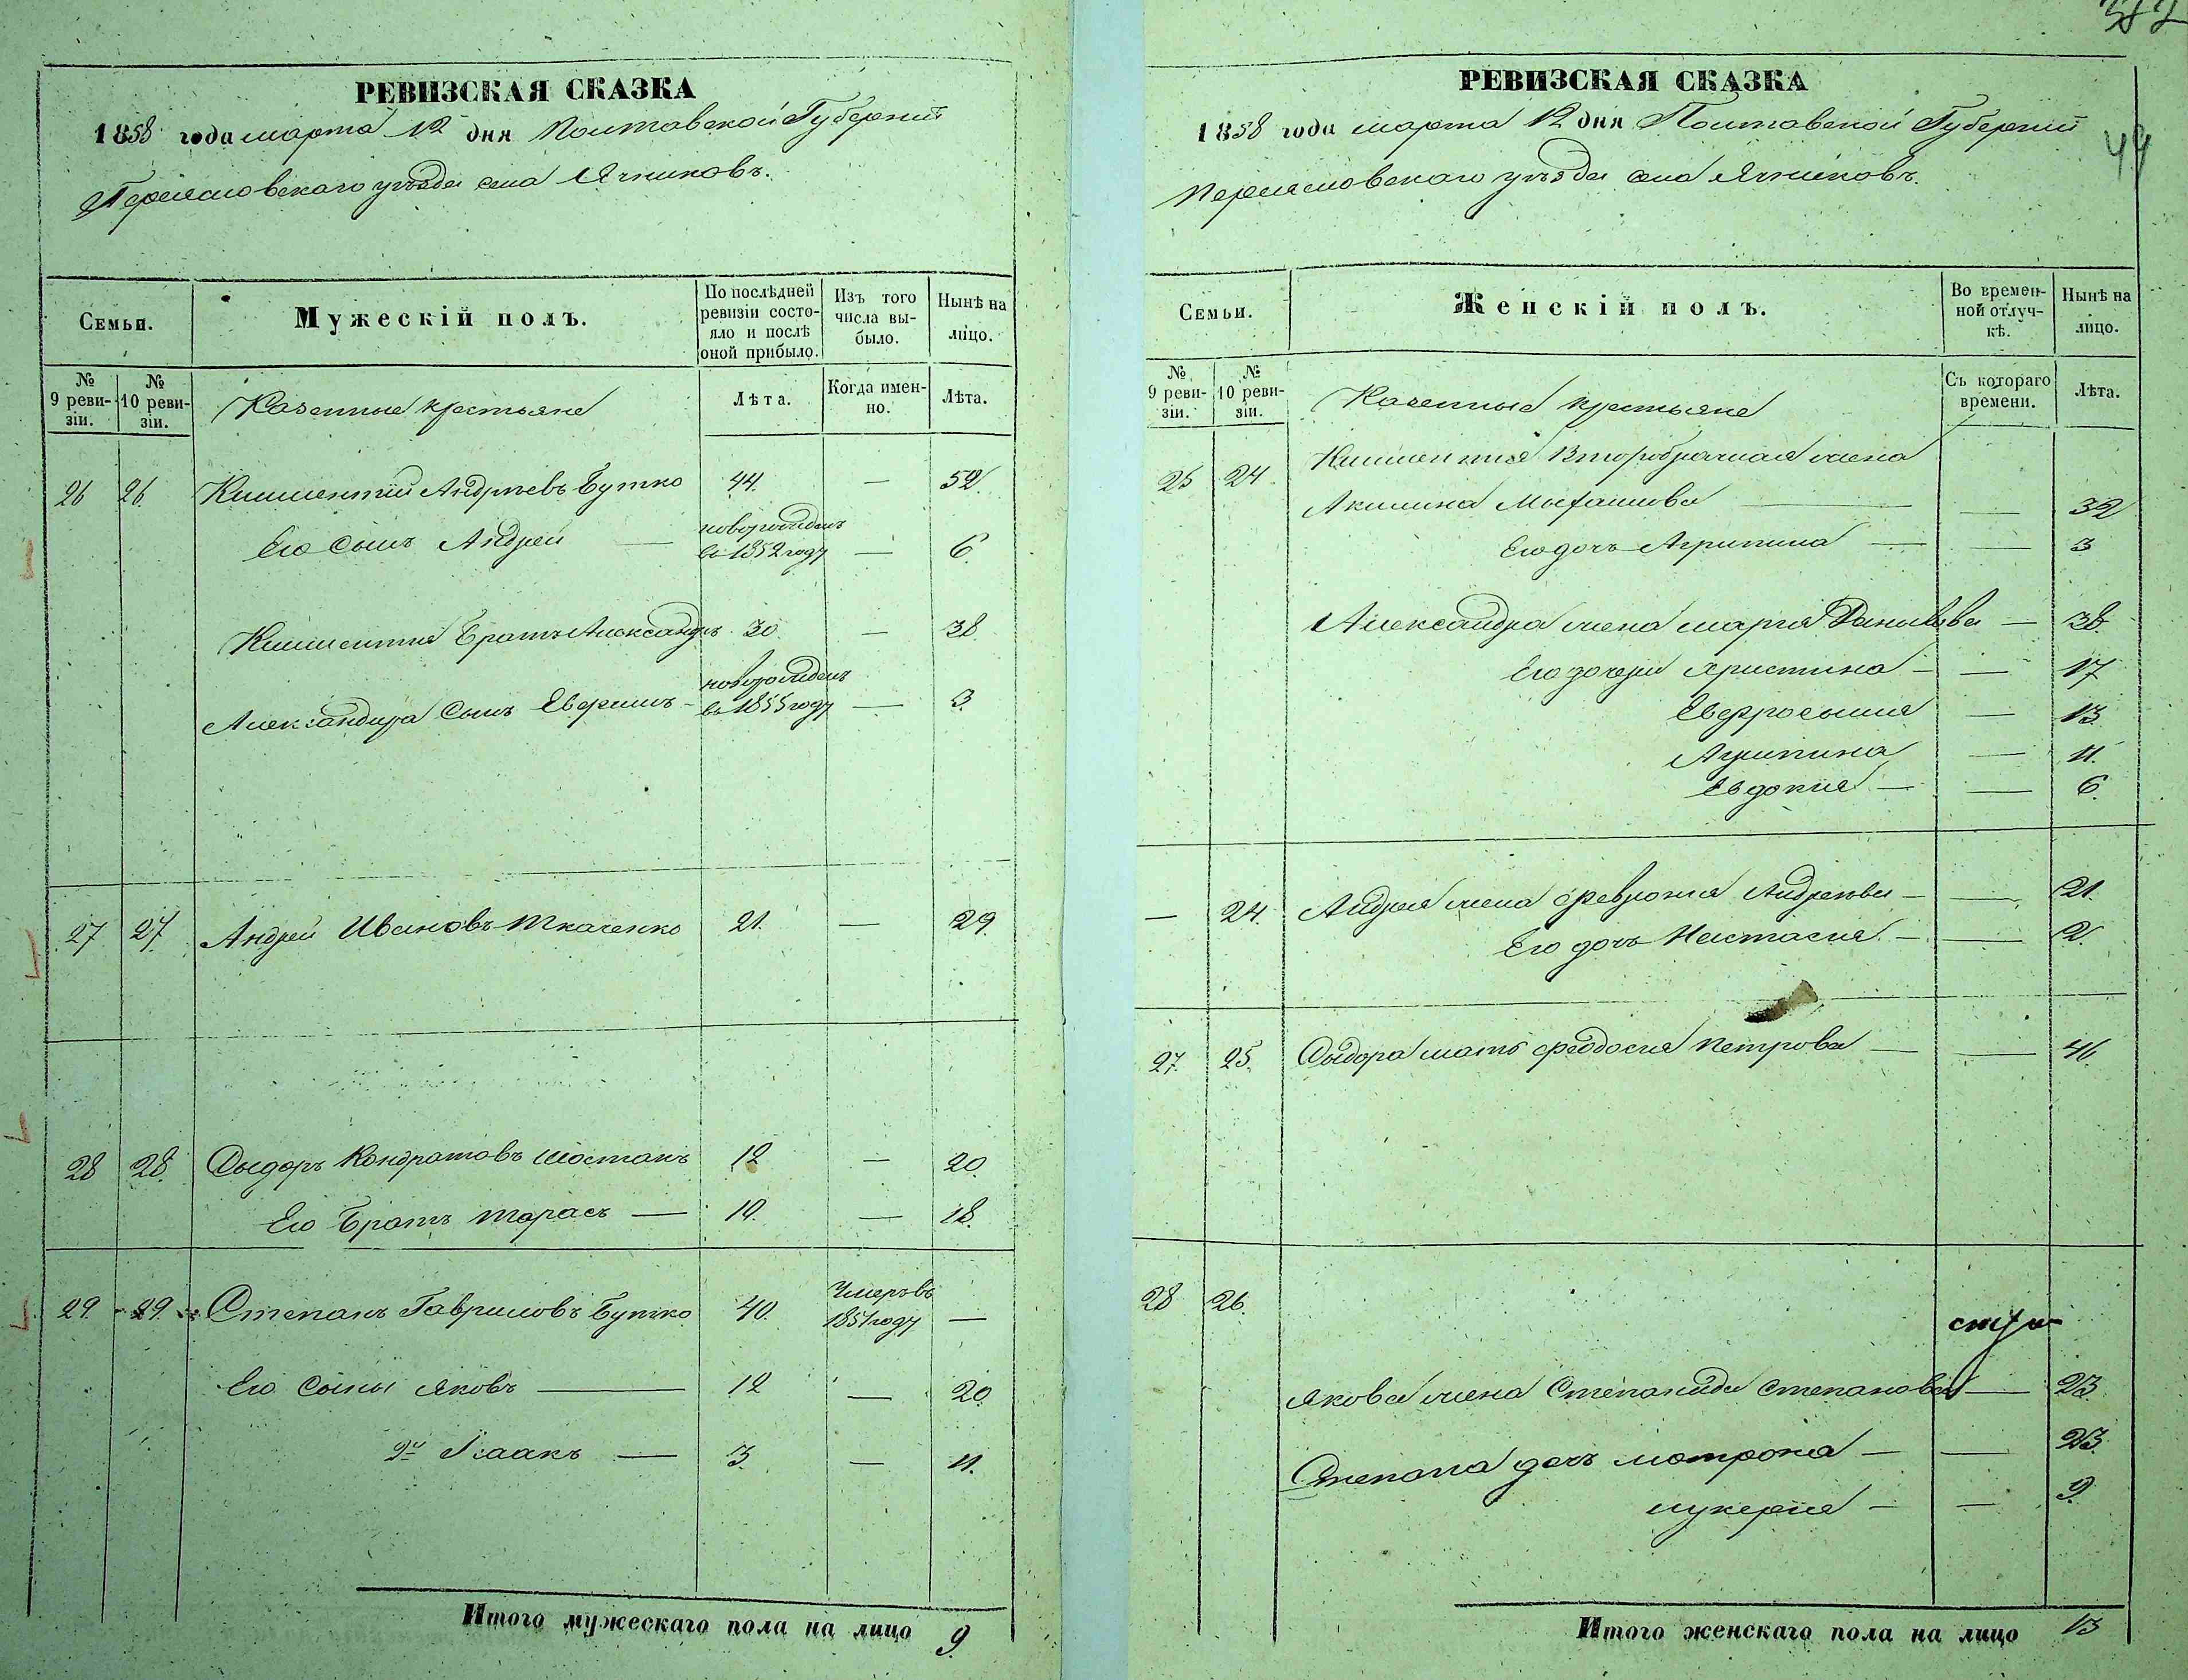 РЕВИЗСКАЯ СКАЗКА
1858 года марта 12 дня Полтавской Губернии
Переясловскаго уезда села Ячников.
Семьи.
Мужескій полъ.
По послѣдней ревизіи состо-
яло и послѣ
оной прибыло.
Изъ того
числа вы-
было.
Нынѣ на
лицо.
№
9 реви-
зіи.
№
10 реви-
зіи.
Казенные крестьяне
Лѣта.
Когда имен-
но.
Лѣта.
26 26. Климентий Андреевъ Бутко 44. — 52.
Его сынъ Андрей — новорожденъ в 1852 году — 6.
Климентия Братъ Александръ 30 — 38
Александра Сынъ — новорожденъ в 1855 году — 3.
27 27. Андрей Ивановъ Ткаченко 21. — 29
28 28. Сыдоръ Кондратовъ Шостакъ 12 — 20.
Его Братъ Тарасъ — 10. — 18.
29. 29. Степанъ Гавриловъ Бутко 40. Умеръ въ 1851 году —
Его Сыны Яковъ — 12 — 20.
2й Исаакъ — 3. — 11.
Итого мужескаго пола на лицо 9.
РЕВИЗСКАЯ СКАЗКА
1858 года марта 12 дня Полтавской Губернии
Переясловскаго уезда села Ячников.
44
Семьи.
Женскій полъ.
Во времен-
ной отлуч-
кѣ.
Нынѣ на
лицо.
№
9 реви-
зіи.
№
10 реви-
зіи.
Казенные крестьяне
Съ котораго
времени.
Лѣта.
25 24 Климентия Второбрачная жена
Акилина — — 32
Его дочь Агрипина — — 3
Александра жена Мария Данилова — 38.
Его дочери Христина — — 17
Евфросиния — 13.
Агрипина — 11.
Евдокия — — 6.
— 24. Андрея жена Феврония Андреева — — 21.
Его дочь Настасия — — 2.
27. 25. Сыдора мать Феодосия Петрова — — 46.
28 26.
Якова жена Степанида Степанова — 23.
Степана дочь Мотрона — — 23.
Лукерия — — 9.
Итого женскаго пола на лицо 13